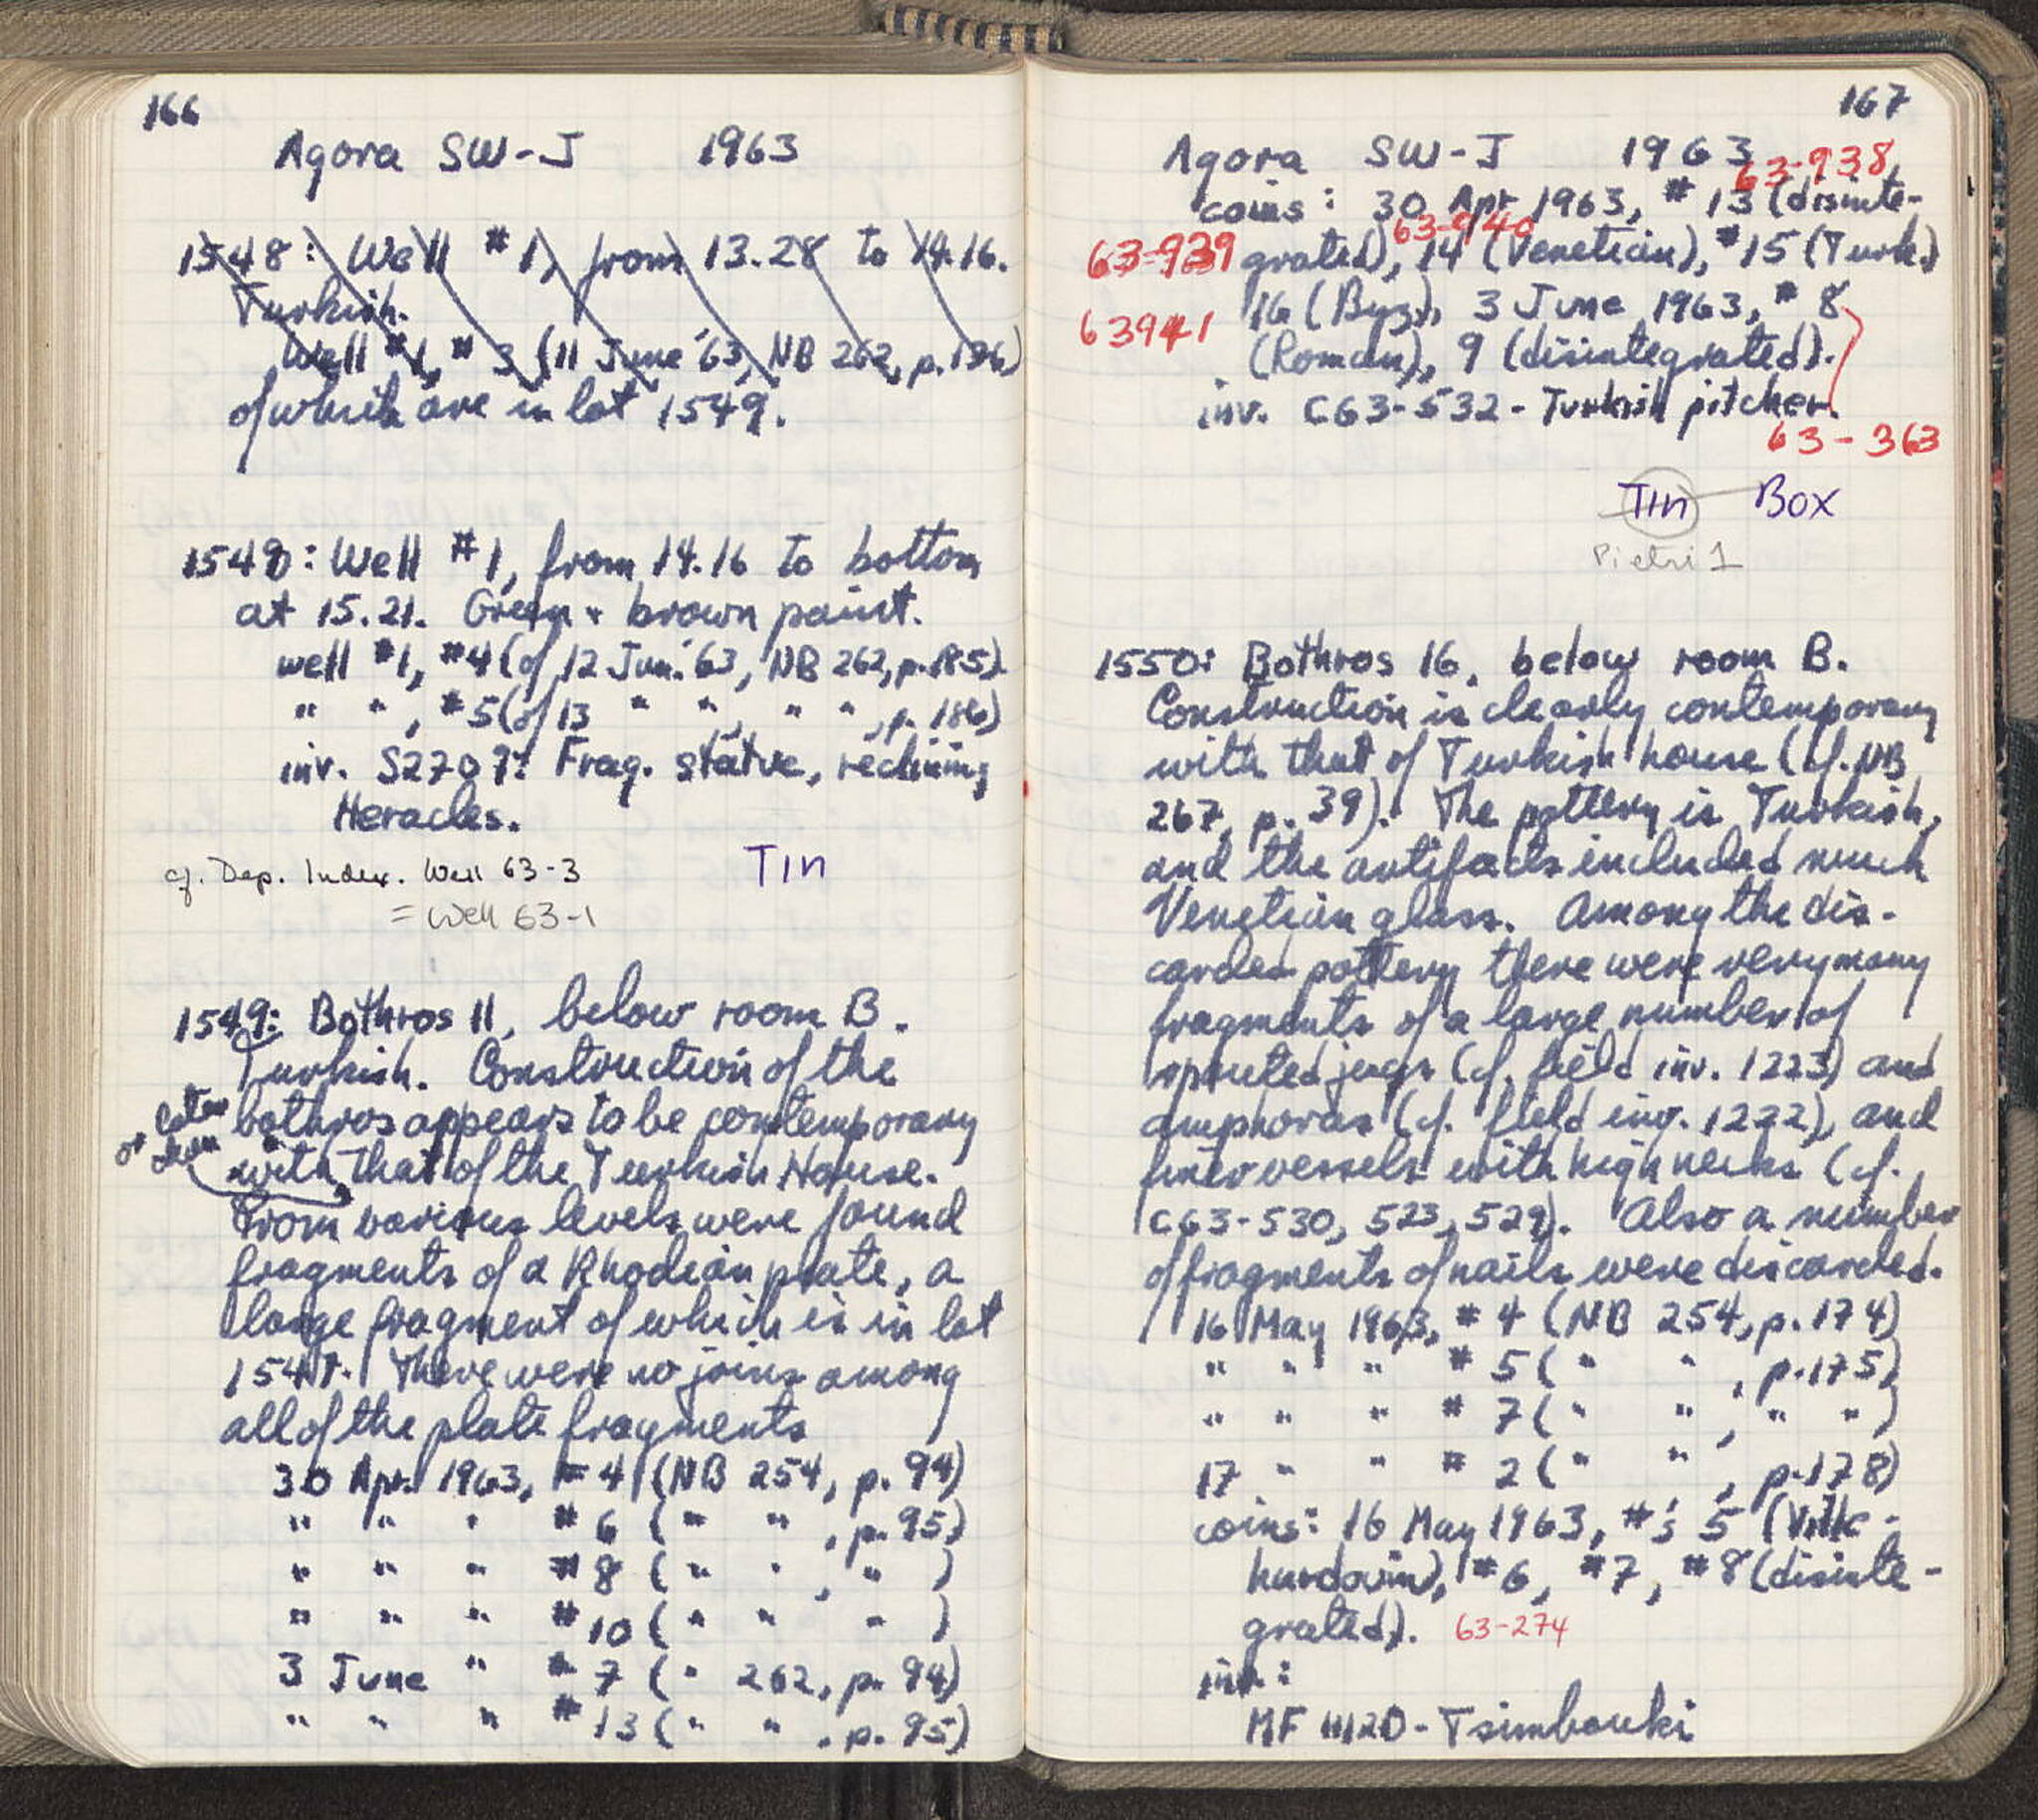 166
Agora SW-J 1963
1548: Well #1, from 13.28 to 14.16.
Turkish.
Well #1, #3 (11 June '63, NB 262, p. 186)
of which are in lot 1549.
1548: Well #1, from 14.16 to bottom
at 15.21. Green + brown paint.
well #1, #4 (of 12 Jun. '63, NB 262, p. 185)
" " , #5 (of 13 " " , " " , p. 186)
inv. S2709: Frag. statue, reclining
Heracles.
cf. Dep. Index. Well 63-3
TIN
= Well 63-1
1549: Bothros 11, below room B.
Turkish. Construction of the
bothros appears to be contemporary
or later than
with that of the Turkish House.
From various levels were found
fragments of a Rhodian plate, a
large fragment of which is in lot
1547. There were no joins among
all of the plate fragments
30 Apr. 1963, #4 (NB 254, p. 94)
" " " #6 ( " " , p. 95)
" " " #8 ( " " , " )
" " " #10 ( " " " )
3 June " #7 ( " 262, p. 94)
" " " #13 ( " " , p. 95)
167
Agora SW-J 1963
63-938
coins: 30 Apr 1963, #13 (disinte-
63-939 63-940
grated), 14 (Venetian), #15 (Turk.)
63941
16 (Byz.), 3 June 1963, #8
(Roman), 9 (disintegrated).
inv. C63-532 - Turkish pitcher.
63-363
TIN Box
Pietri 1
1550: Bothros 16, below room B.
Construction is clearly contemporary
with that of Turkish house (cf. NB
267, p. 39). The pottery is Turkish,
and the artifacts included much
Venetian glass. Among the dis-
carded pottery there were very many
fragments of a large number of
spouted jugs (cf. field inv. 1223) and
amphoras (cf. field inv. 1222), and
finer vessels with high necks (cf.
C63-530, 523, 529). Also a number
of fragments of nails were discarded.
16 May 1963, #4 (NB 254, p. 174)
" " " #5 ( " " , p. 175)
" " " #7 ( " " , " " )
17 " " #2 ( " " , p. 178)
coins: 16 May 1963, #'s 5 (Ville-
hardouin), #6, #7, #8 (disinte-
grated). 63-274
inv.:
MF 11120 - Tsimbouki